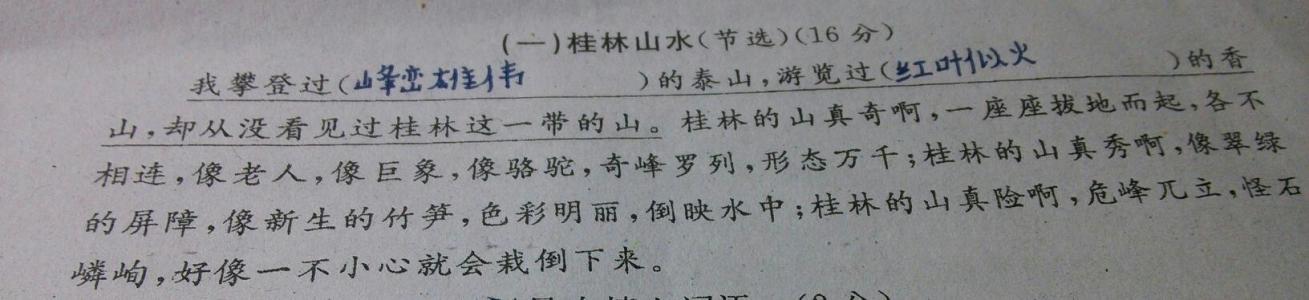 (一)桂林山水(节选)(16分)
我攀登过(峰峦雄伟)的泰山,游览过(红叶似火)的香
山,却从没看见过桂林这一带的山。桂林的山真奇啊,一座座拔地而起,各不
相连,像老人,像巨象,像骆驼,奇峰罗列,形态万千;桂林的山真秀啊,像翠绿
的屏障,像新生的竹笋,色彩明丽,倒映水中;桂林的山真险啊,危峰兀立,怪石
嶙峋,好像一不小心就会栽倒下来。